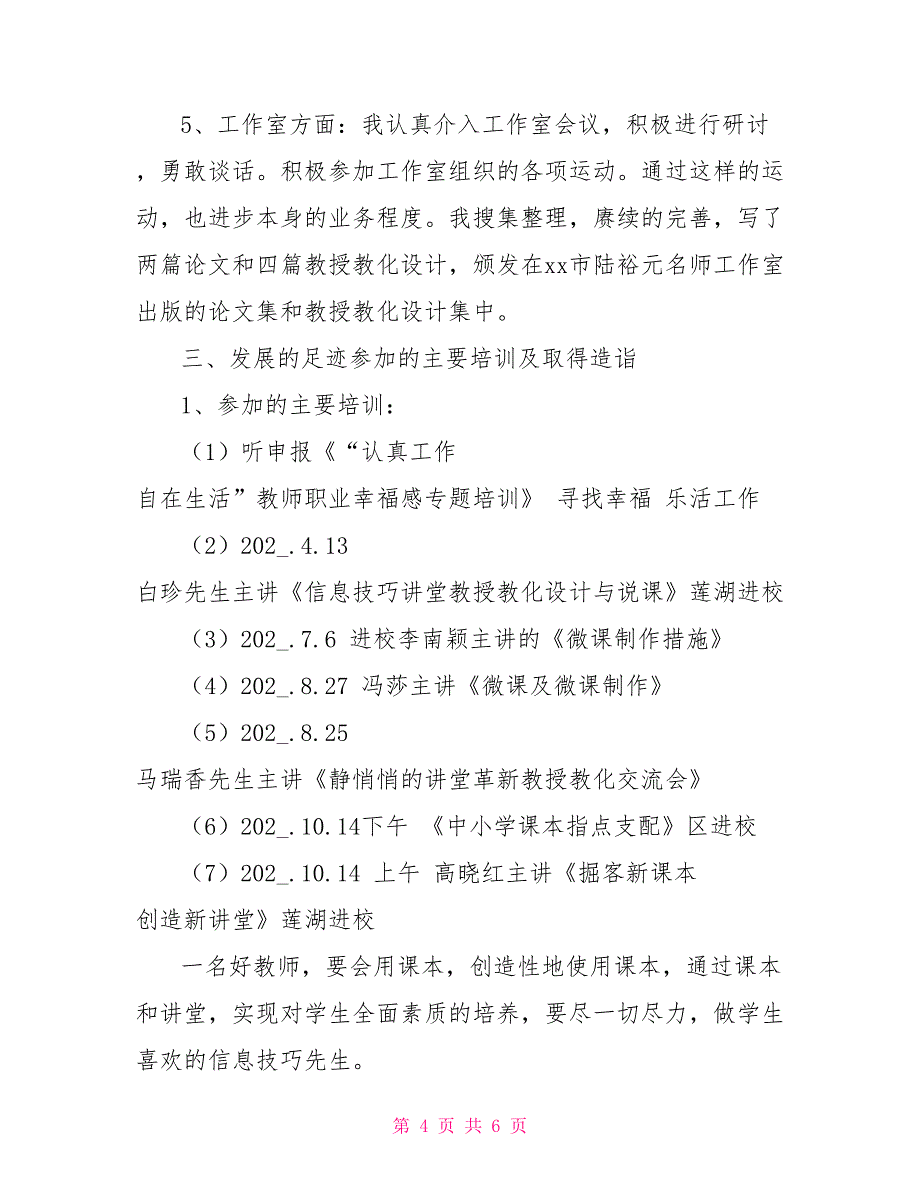 5、工作室方面：我认真介入工作室会议，积极进行研讨
，勇敢谈话。积极参加工作室组织的各项运动。通过这样的运
动，也进步本身的业务程度。我搜集整理，赓续的完善，写了
两篇论文和四篇教授教化设计，颁发在xx市陆裕元名师工作室
出版的论文集和教授教化设计集中。
三、发展的足迹参加的主要培训及取得造诣
1、参加的主要培训：
（1）听申报《“认真工作
自在生活”教师职业幸福感专题培训》 寻找幸福 乐活工作
（2）202_.4.13
白珍先生主讲《信息技巧讲堂教授教化设计与说课》莲湖进校
（3）202_.7.6 进校李南颖主讲的《微课制作措施》
（4）202_.8.27 冯莎主讲《微课及微课制作》
（5）202_.8.25
马瑞香先生主讲《静悄悄的讲堂革新教授教化交流会》
（6）202_.10.14下午 《中小学课本指点支配》区进校
（7）202_.10.14 上午 高晓红主讲《掘客新课本
创造新讲堂》莲湖进校
一名好教师，要会用课本，创造性地使用课本，通过课本
和讲堂，实现对学生全面素质的培养，要尽一切尽力，做学生
喜欢的信息技巧先生。
第 4 页 共 6 页